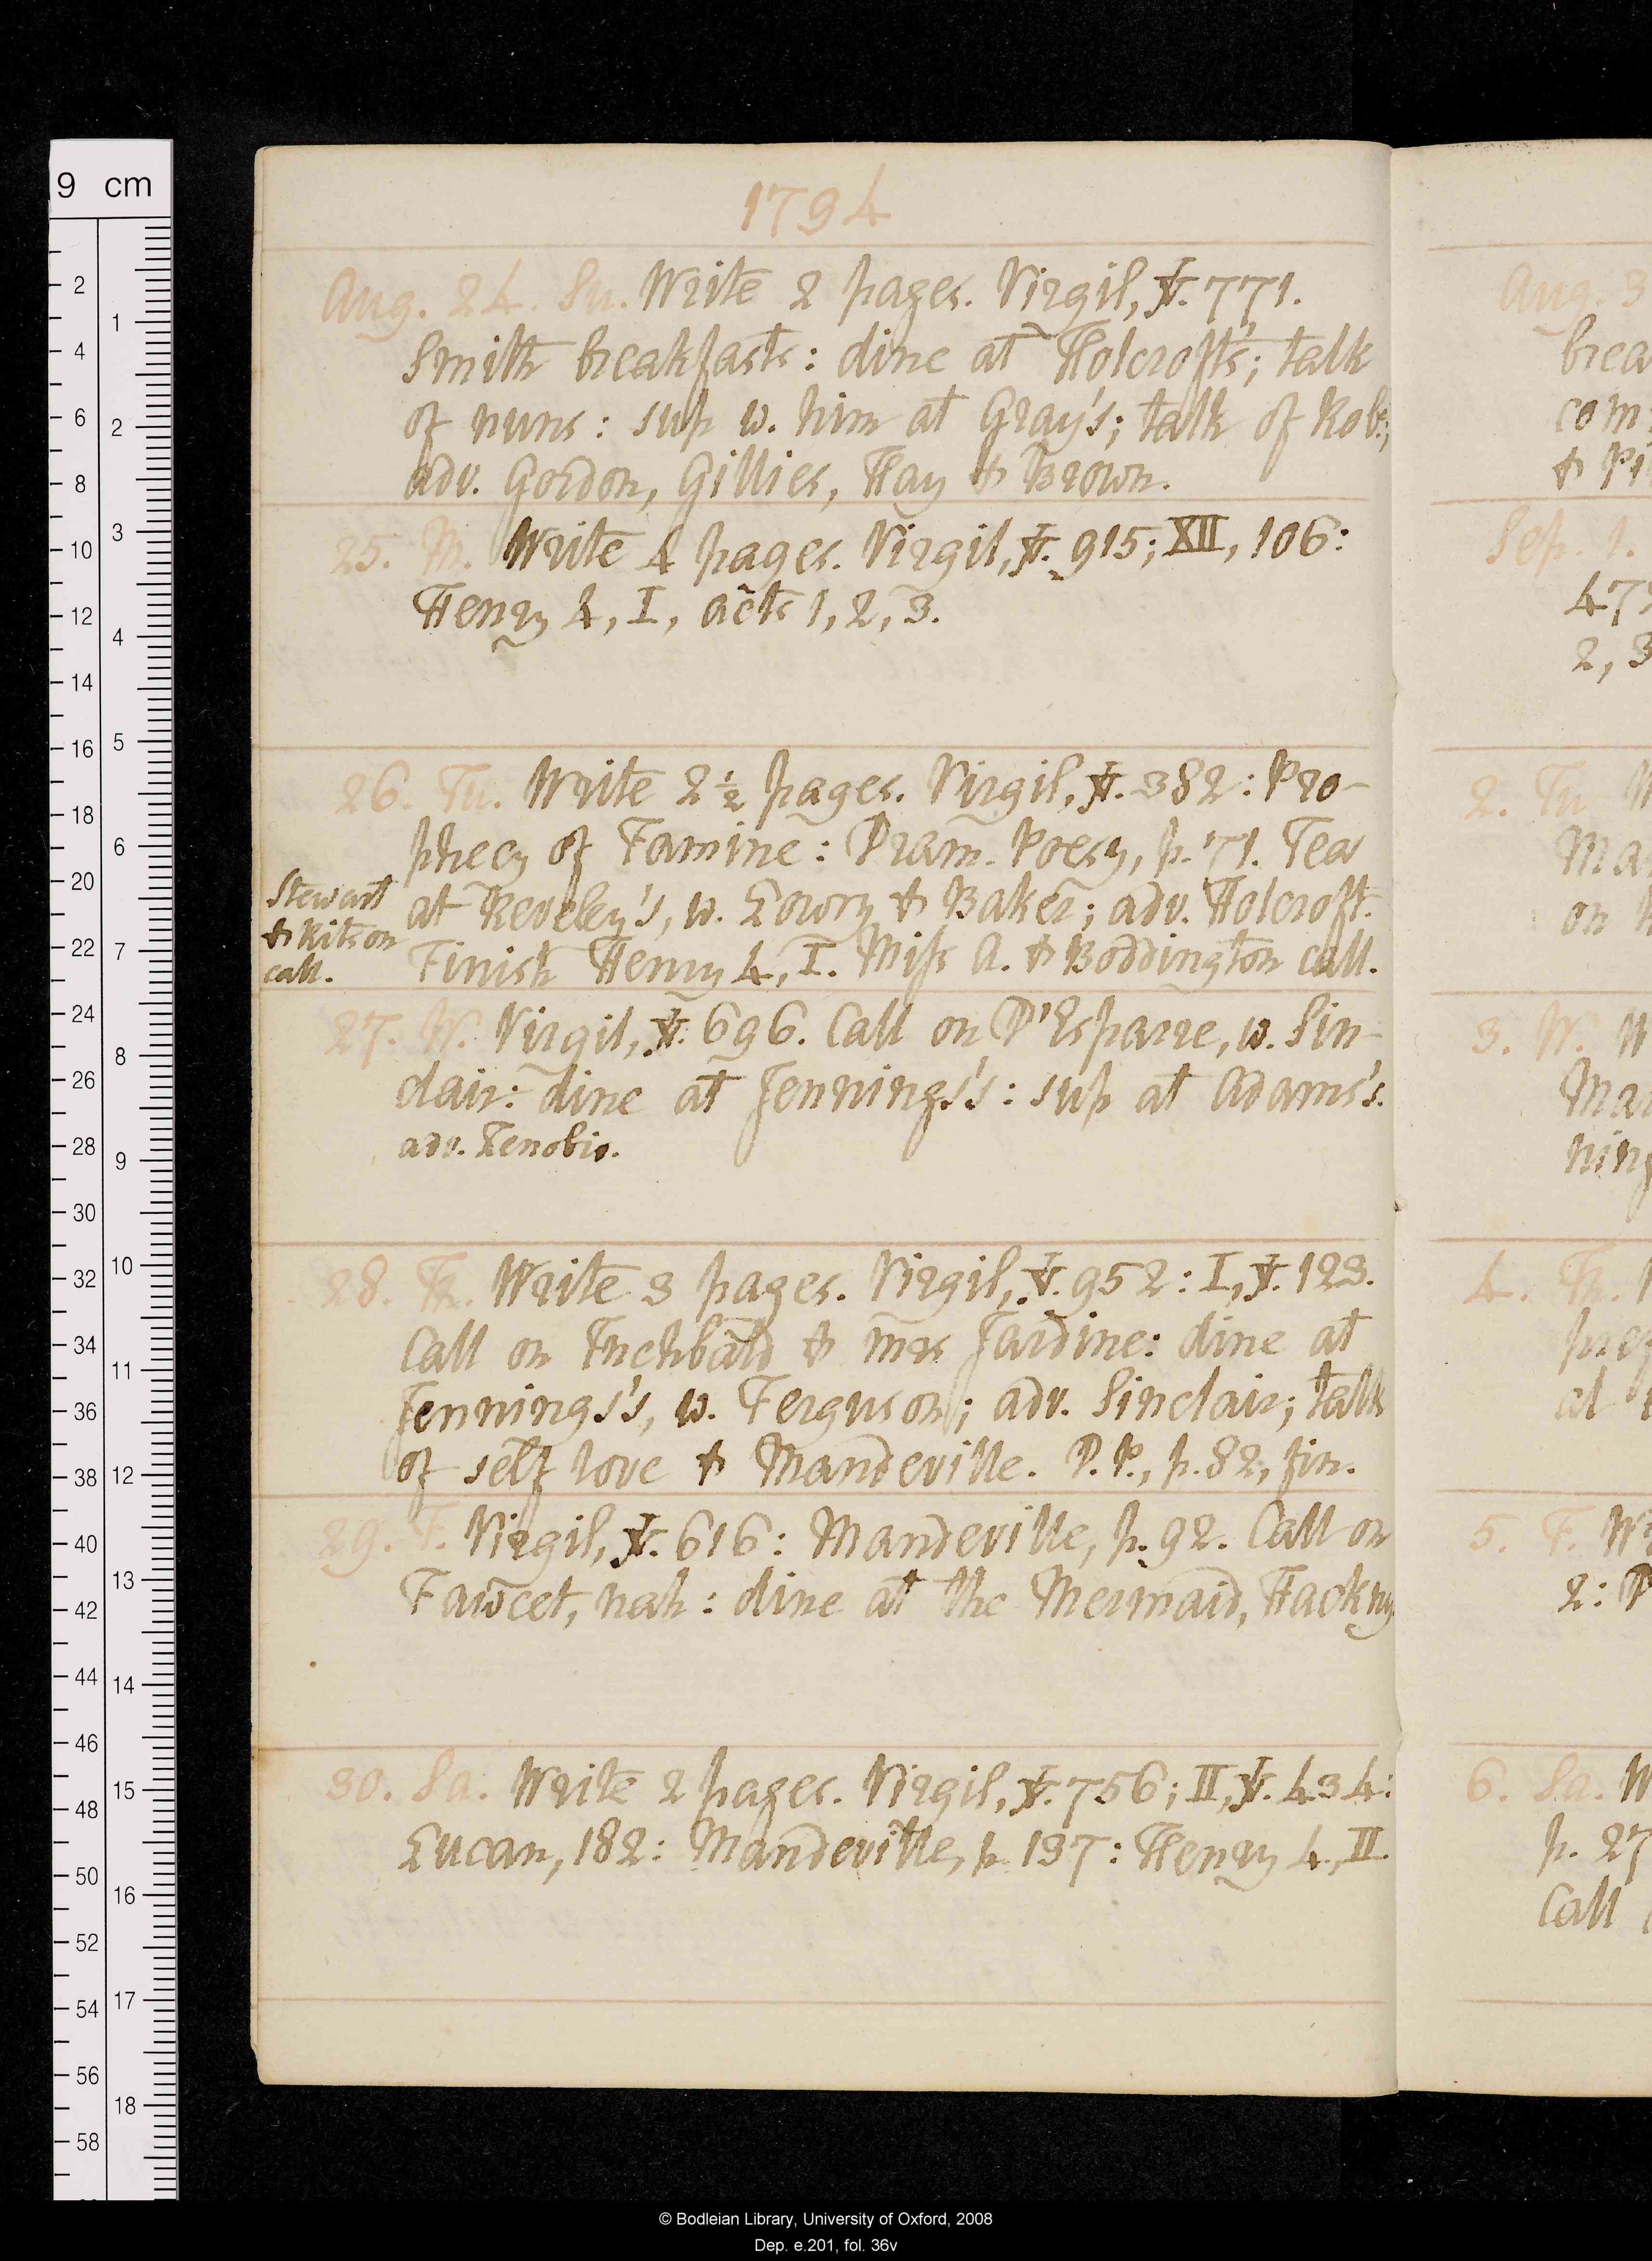 1794
Aug. 24. Su. Write 2 pages. Virgil, ℣. 771.
Smith breakfasts: dine at Holcroft's; talk
of nuns: sup w. him at Gray's; talk of Rob:;
adv. Gordon, Gillies, Hay & Brown.
25. M. Write 4 pages. Virgil, ℣. 915; XII, 106:
Henry 4, I, acts 1, 2, 3.
26. Tu. Write 2 ½ pages. Virgil, ℣. 382: Pro-
phecy of Famine: Dram. Poesy, p. 71. Tea
at Reveley's, w. Lowry & Baker; adv. Holcroft.
Finish Henry 4, I. Miss A. & Boddington call.
Stewart
& Ritson
call.
27. W. Virgil, ℣. 696. Call on D'Esparre, w. Sin-
clair: dine at Jennings's: sup at Adams's.
adv. Zenobio.
28. Th. Write 3 pages. Virgil, ℣. 952: I, ℣. 123.
Call on Inchbald & mrs Jardine: dine at
Jennings's, w. Ferguson; adv. Sinclair; talk
of self love & Mandeville. D. P., p. 82, fin.
29. F. Virgil, ℣. 616: Mandeville, p. 92. Call on
Fawcet, nah: dine at the Mermaid, Hackny
30. Sa. Write 2 pages. Virgil, ℣. 756; II, ℣. 434:
Lucan, 182: Mandeville, p. 137: Henry 4, II.
Aug. 3
brea
com
& Pi
Sep. 1.
47
2, 3
2. Tu
Ma
on
3. W. W
Man
ning
4. Th.
pre
al
5. F. Wr
2: D
6. Sa. W
p. 27
Call
9 cm
2
4
6
8
10
12
14
16
18
20
22
24
26
28
30
32
34
36
38
40
42
44
46
48
50
52
54
56
58
1
2
3
4
5
6
7
8
9
10
11
12
13
14
15
16
17
18
© Bodleian Library, University of Oxford, 2008
Dep. e.201, fol. 36v